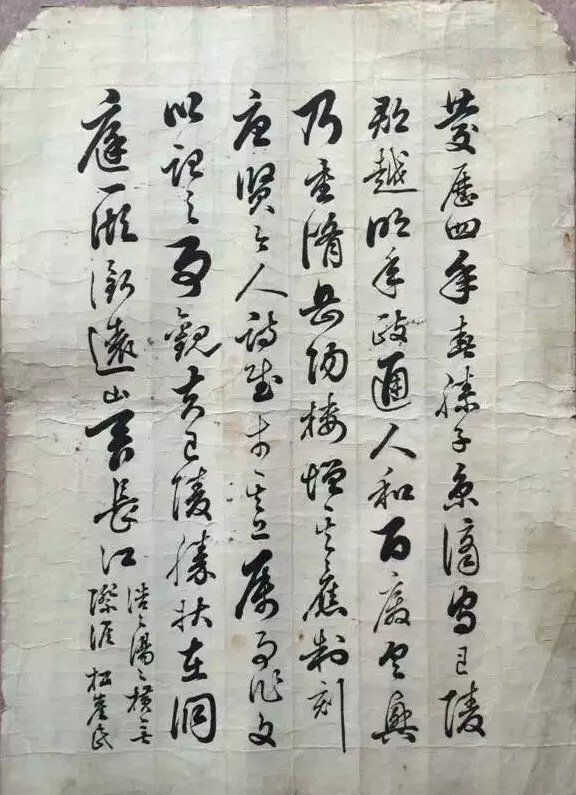 慶歷四年春滕子京謫守巴陵
郡越明年政通人和百廢具興
乃重脩岳陽樓增其舊制刻
唐賢今人詩賦於其上屬予作文
以記之予觀夫巴陵勝狀在洞
庭一湖銜遠山吞長江
浩々湯々橫無
際涯 松崖氏